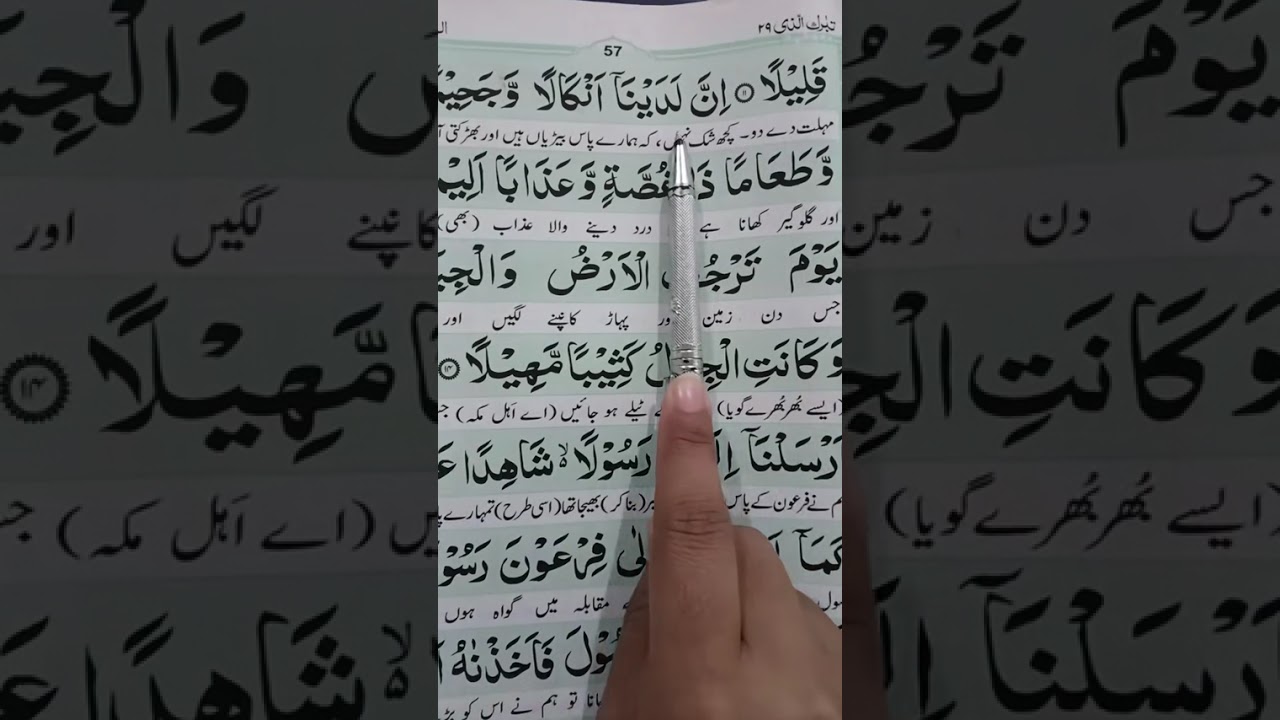 تبٰرك الذی ۲۹
57
قَلِيْلًا ۱۱ اِنَّ لَدَيْنَاۤ اَنْكَالًا وَّجَحِيْمًا
مہلت دے دو۔ کچھ شک نہیں، کہ ہمارے پاس بیڑیاں ہیں اور بھڑکتی
وَّطَعَامًا ذَا غُصَّةٍ وَّعَذَابًا اَلِيْمًا
اور گلوگیر کھانا ہے درد دینے والا عذاب (بھی)
يَوْمَ تَرْجُفُ الْاَرْضُ وَالْجِبَ
جس دن زمین اور پہاڑ کانپنے لگیں اور
وَكَانَتِ الْجِبَالُ كَثِيْبًا مَّهِيْلًا ۱۴
(ایسے بُھر بُھرے گویا) کے ٹیلے ہو جائیں (اے اَہل مکہ)
رْسَلْنَاۤ اِلَ رَسُوْلًا ۙ۬ شَاهِدًا عَ
م نے فرعون کے پاس (بنا کر) بھیجا تھا (اسی طرح) تمہارے
كَمَاۤ لٰى فِرْعَوْنَ رَسُوْ
مقابلہ میں گواہ ہوں
سُوْلَ فَاَخَذْنٰهُ
مانا تو ہم نے اس کو